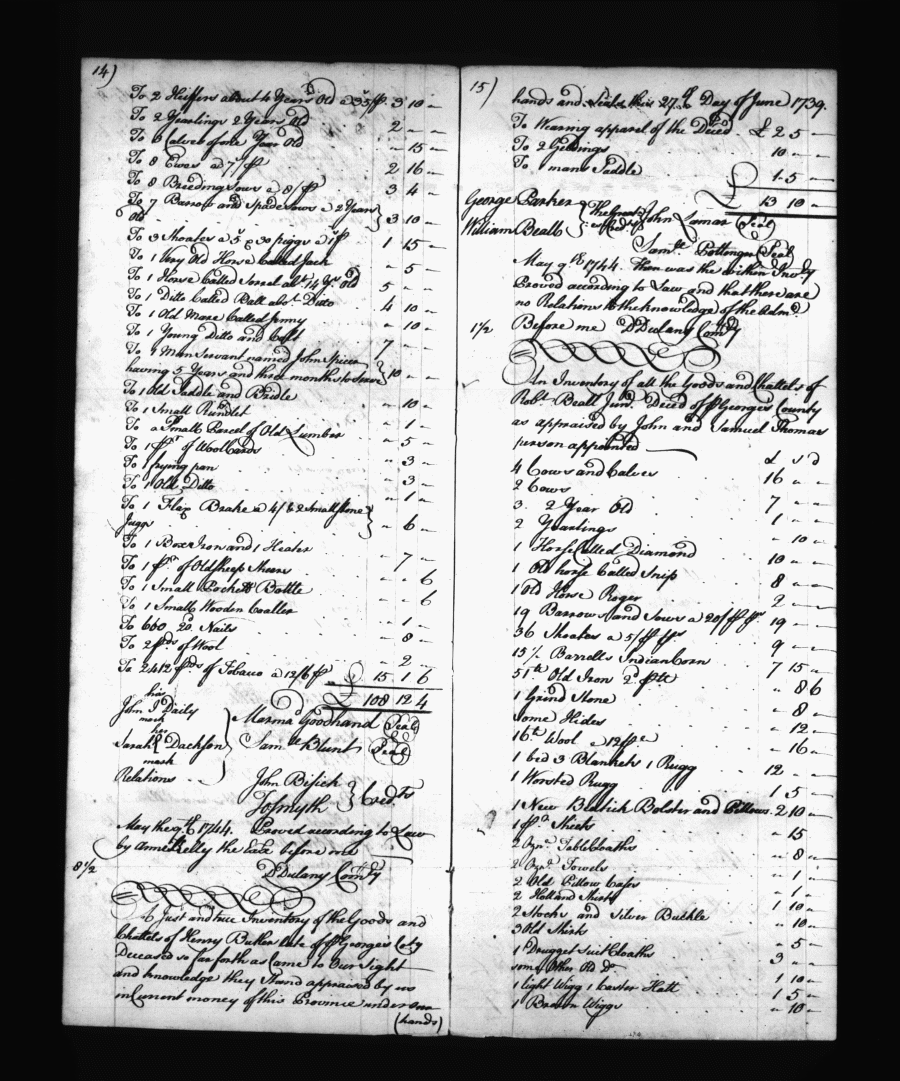 14)
To 2 Heiffers about 4 Years Old a 35/ p 3 10 —
To 2 Yearlings 2 Years Old 2 — —
To 3 Calves of one Year Old — 15 —
To 8 Ewes a 7/ p 2 16 —
To 8 Breeding Sows a 8/ p 3 4 —
To 7 Barrow and Spade Sows a 2 Years
Old 3 10 —
To 3 Shoates a 5 & 30 piggs a 1/ p 1 15 —
To 1 Very Old Horse Called Jack — 5 —
To 1 Horse Called Sorrel abt. 14 Yrs Old 5 — —
To 1 Ditto Called Ball abot. Ditto 4 10 —
To 1 Old Mare Called Jenny — 10 —
To 1 Young Ditto and Colt 7 — —
To 1 Man Servant named John Spicer
having 5 Years and three months to Serve 10 — —
To 1 Old Saddle and Bridle — 10 —
To 1 Small Rundlet — 1 —
To a Small Parcel of Old Lumber — 5 —
To 1 pr of Wool Cards — 3 —
To 1 frying pan — 3 —
To 1 Old Ditto — 1 —
To 1 Flax Brake a 4/ & 2 Small Stone
Juggs — 6 —
To 1 Box Iron and 1 Heater — 7 —
To 1 pr of Old Sheep Sheers — — 6
To 1 Small Pockett Bottle — — 6
To 1 Small Wooden Coaller — 1 —
To 660 20d. Nails — 8 —
To 2 pds of Wool — 2 —
To 2412 pds of Tobaco a 12/6 p 15 1 6
£ 108 12 4
his
John D Daily
mark
her
Sarah Dackson
mark
Relations
Marma Goodhand (Seal)
Saml. Blunt (Seal)
John Bisick
Jo Smyth } Cred.rs
May the 9th 1744. Proved according to Law
by Anne Kelly the Exx before me
8 1/2
D Dulany Comy
A Just and true Inventory of the Goods and
Chattels of Henry Butler late of P Georges Coty
Deceased so far forth as Came to Our Sight
and knowledge they Stand appraised by us
in Current money of this Province under our
(hands)
15)
hands and Seals this 27th Day of June 1739.
To Wearing apparel of the Deced. £ 2 5 —
To 2 Geldings 10 — —
To 1 mans Saddle 1 5 —
£ 13 10 —
George Parker
William Beall
John Lamar (Seal)
Samll Pottenger (Seal)
May 9th 1744. Then was the within Invry
Proved according to Law and that there are
no Relations to the knowledge of the Admr.
1 1/2
Before me D Dulany Comry
An Inventory of all the Goods and Chattels of
Robt. Beall Junr. Deced of P Georges County
as appraised by John and Samuel Thomas
person appointed
£ s d
4 Cows and Calves 16 — —
2 Cows 7 — —
3 2 Year Old 1 — —
2 Yearlings — 10 —
1 Horse Called Diamond 10 — —
1 Old horse Called Snip 8 — —
1 Old Horse Roger 2 — —
19 Barrows and Sows a 20/ p 19 — —
36 Shoates a 5/ p 9 — —
15 1/2 Barrells Indian Corn 7 15 —
51 lb Old Iron 2d p lb — 8 6
1 Grind Stone — 8 —
Some Hides — 12 —
16 lb Wool a 12 p — 16 —
1 bed 3 Blankets 1 Rugg 12 — —
1 Worsted Rugg 1 5 —
1 New Bedtick Bolster and Pillows 2 10 —
1 pr Sheets — 15 —
2 Ozn. Table Cloaths — 8 —
2 Ozn. Towels — 1 —
2 Old Pillow Cases — 1 —
2 Holland Shirts 1 10 —
2 Stocks and Silver Buckle — 10 —
3 Old Shirts — 5 —
1 Drugget Suit Cloaths 3 — —
some Other Old Do.
1 light Wigg 1 Caster Hatt 1 10 —
1 Brown Wigg 1 5 —
— 10 —